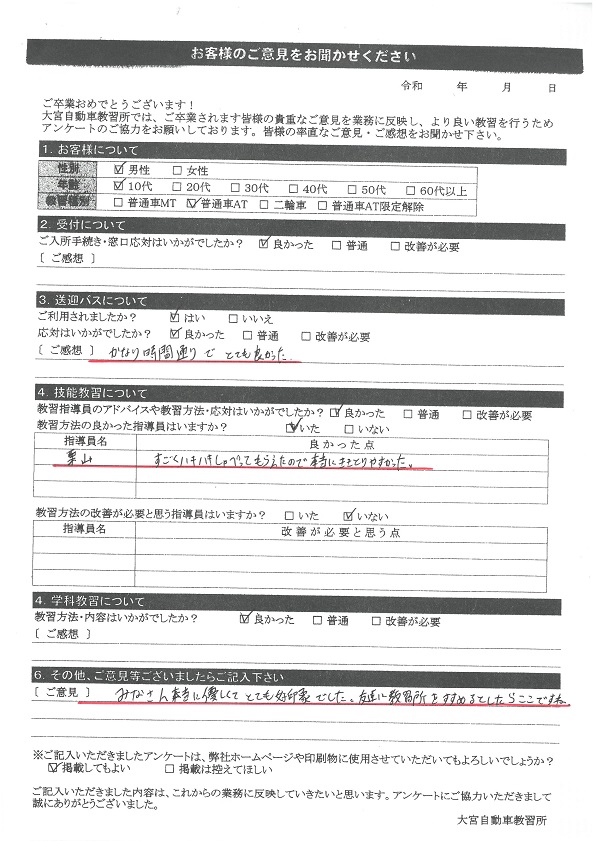 お客様のご意見をお聞かせください
令和 年 月 日
ご卒業おめでとうございます！
大宮自動車教習所では、ご卒業されます皆様の貴重なご意見を業務に反映し、より良い教習を行うため
アンケートのご協力をお願いしております。皆様の率直なご意見・ご感想をお聞かせ下さい。
1. お客様について
性別 ☑男性 □女性
年齢 ☑10代 □20代 □30代 □40代 □50代 □60代以上
教習種別 □普通車MT ☑普通車AT □二輪車 □普通車AT限定解除
2. 受付について
ご入所手続き・窓口応対はいかがでしたか？ ☑良かった □普通 □改善が必要
［ ご感想 ］
3. 送迎バスについて
ご利用されましたか？ ☑はい □いいえ
応対はいかがでしたか？ ☑良かった □普通 □改善が必要
［ ご感想 ］ かなり時間通りで とても良かった.
4. 技能教習について
教習指導員のアドバイスや教習方法・応対はいかがでしたか？ ☑良かった □普通 □改善が必要
教習方法の良かった指導員はいますか？ ☑いた □いない
指導員名 良かった点
栗山 すごくハキハキしゃべってもらえたので本当にききとりやすかった。
教習方法の改善が必要と思う指導員はいますか？ □いた ☑いない
指導員名 改善が必要と思う点
4. 学科教習について
教習方法・内容はいかがでしたか？ ☑良かった □普通 □改善が必要
［ ご感想 ］
6. その他、ご意見等ございましたらご記入下さい
［ ご意見 ］ みなさん本当に優しくて とても好印象でした。友達に教習所をすすめるとしたらここですね
※ご記入いただきましたアンケートは、弊社ホームページや印刷物に使用させていただいてもよろしいでしょうか？
☑掲載してもよい □掲載は控えてほしい
ご記入いただきました内容は、これからの業務に反映していきたいと思います。アンケートにご協力いただきまして
誠にありがとうございました。
大宮自動車教習所